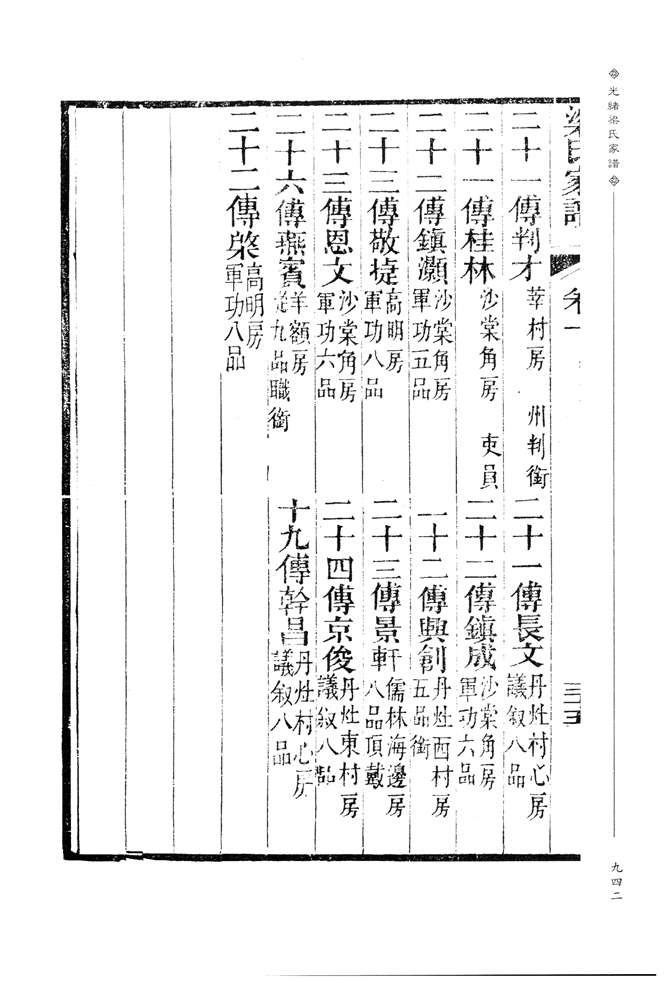 光緒梁氏家譜
梁氏家譜 卷一 三十五
二十一傳判才 莘村房 州判銜
二十一傳長文 丹灶村心房 議叙八品
二十一傳桂林 沙棠角房 吏員
二十二傳鎮成 沙棠角房 軍功六品
二十二傳鎮灝 沙棠角房 軍功五品
二十二傳興創 丹灶西村房 五品銜
二十三傳敬㨗 高明房 軍功八品
二十三傳景軒 儒林海邊房 八品頂戴
二十三傳恩文 沙棠角房 軍功六品
二十四傳京俊 丹灶東村房 議叙八品
二十六傳燕賓 羊額房 從九品職銜
十九傳幹昌 丹灶村心房 議叙八品
二十二傳棨 高明房 軍功八品
九四二